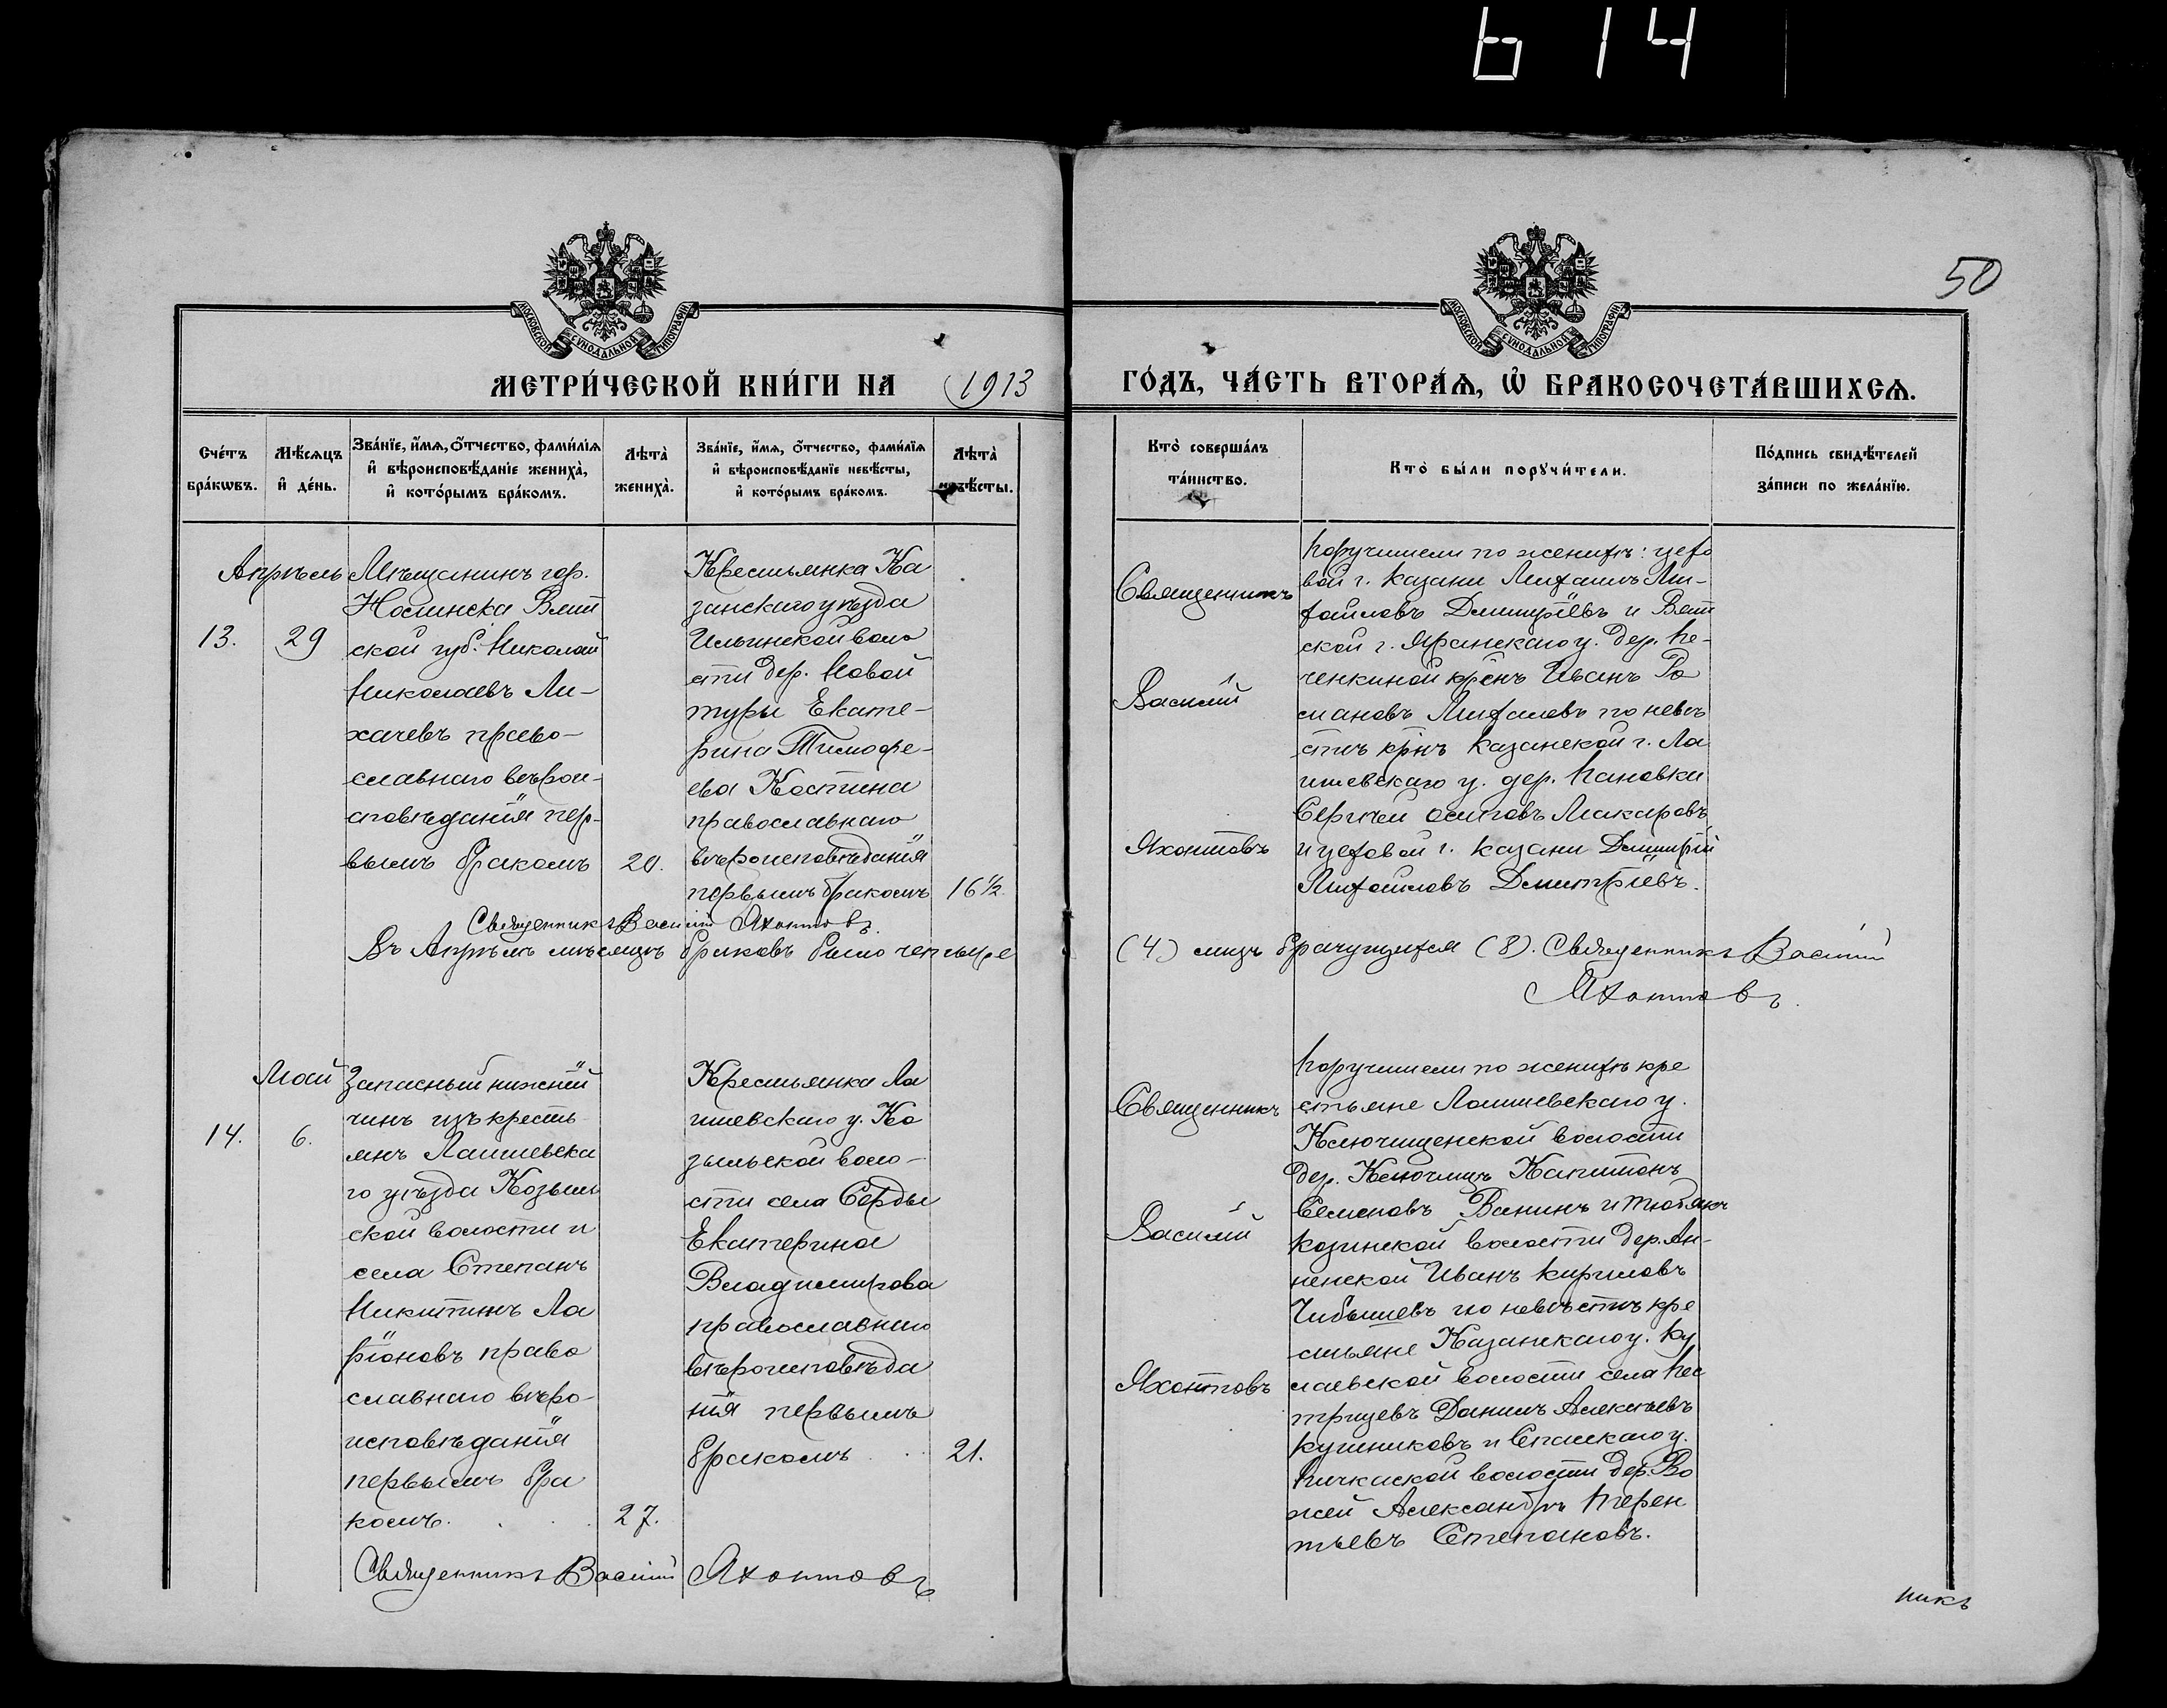 614
50
МОСКОВСКОЙ СѴНОДАЛЬНОЙ ТИПОГРАФІИ
МОСКОВСКОЙ СѴНОДАЛЬНОЙ ТИПОГРАФІИ
МЕТРИ́ЧЕСКОЙ КНИ́ГИ НА 1913
ГО́ДЪ, ЧА́СТЬ ВТОРА́Ѧ, Ѽ БРАКОСОЧЕТА́ВШИХСѦ.
Сче́тъ
бра́кѡвъ.
Мѣ́сѧцъ
и҆ де́нь.
Зва́нїе, и҆́мѧ, ѻ҆́тчество, фами́лїѧ
и҆ вѣроисповѣ́данїе жениха̀,
и҆ кото́рымъ бра́комъ.
Лѣта̀
жениха̀.
Зва́нїе, и҆́мѧ, ѻ҆́тчество, фами́лїѧ
и҆ вѣроисповѣ́данїе невѣ́сты,
и҆ кото́рымъ бра́комъ.
Лѣта̀
невѣ́сты.
Кто̀ соверша́лъ
та́инство.
Кто̀ бы́ли порꙋчи́тели.
По́дпись свидѣ́телей
за́писи по жела́нїю.
Апрѣль
13.
29
Мѣщанинъ гор.
Нолинска Вят
ской губ. Николай
Николаевъ Ли-
хачевъ право-
славнаго вѣрои-
сповѣданія пер-
вымъ бракомъ
20.
Крестьянка Ка
занскаго уѣзда
Ильинской воло
сти дер. Новой
туры Екате-
рина Тимофе-
ева Костина
православнаго
вѣроисповѣданія
первымъ бракомъ
16½.
Священникъ
Василій
Яхонтовъ
Поручители по женихѣ: цехо
вой г. Казани Михаилъ Ми-
хаиловъ Димитріевъ и Вят
ской г. Яранскаго у. дер. Пе-
ченкиной крѣнъ Иванъ Ро
мановъ Михалевъ по невѣ
стѣ крнъ Казанской г. Ла
ишевскаго у. дер. Пановки
Сергѣй Осиповъ Макаровъ
и цеховой г. Казани Димитрій
Михаиловъ Дмитріевъ.
Священникъ Василій Яхонтовъ.
Въ Апрѣлѣ мѣсяцѣ браковъ было четыре
(4) лицъ брачущихся (8). Священникъ Василій
Яхонтовъ.
Май
14.
6.
Запасный нижній
чинъ изъ кресть
янъ Лаишевска
го уѣзда Козыль
ской волости и
села Степанъ
Никитинъ Ла
ріоновъ право
славнаго вѣро-
исповѣданія
первымъ бра
комъ.
27.
Крестьянка Ла
ишевскаго у. Ко
зыльской воло-
сти села Серды
Екатерина
Владимирова
православнаго
вѣроисповѣда
нія первымъ
бракомъ
21.
Священникъ
Василій
Яхонтовъ
Поручители по женихѣ кре
стьяне Лаишевскаго у.
Ключищенской волости
дер. Ключищъ Капитонъ
Семеновъ Ванинъ и
волости дер. Ан-
ненской Иванъ Кириловъ
Чибышевъ по невѣстѣ кре
стьяне Казанскаго у. Ку
лаевской волости села Пес
трецевъ Данилъ Алексѣевъ
Кушниковъ и Спасскаго у.
волости дер. Во
жей Александръ Терен
тьевъ Степановъ.
Священникъ Василій Яхонтовъ
никъ